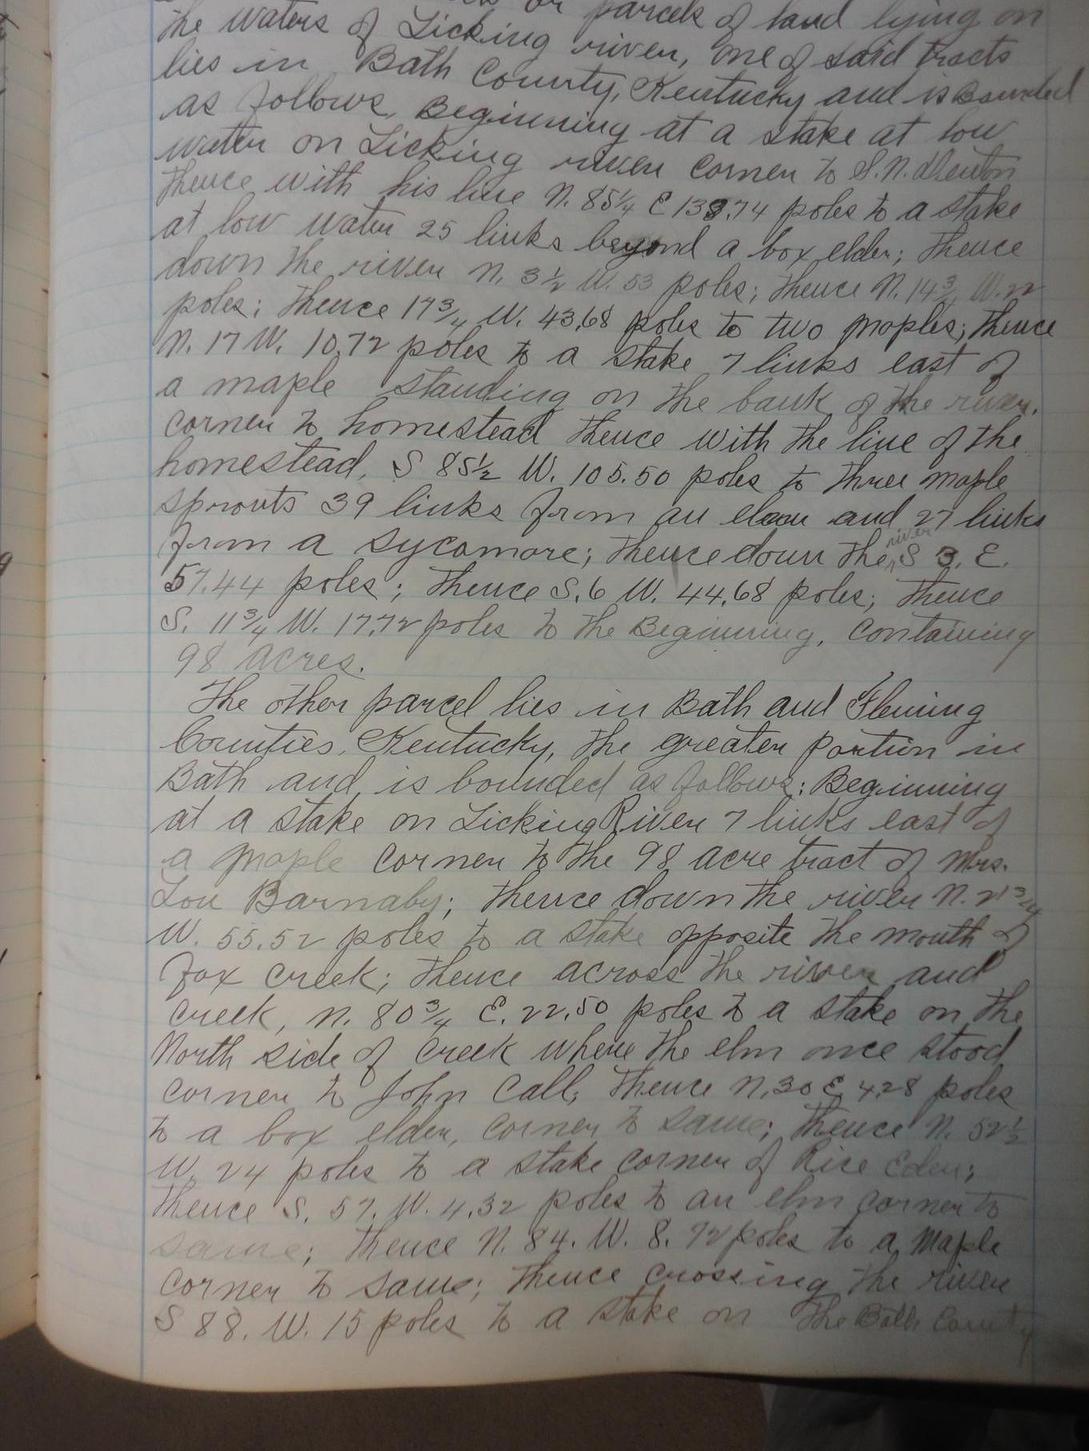 or parcels of land lying on
the waters of Licking river, one of said tracts
lies in Bath County, Kentucky and is Bounded
as follows, Beginning at a stake at low
water on Licking river corner to S. N.
thence with his line N. 85¼ E 138.74 poles to a stake
at low water 25 links beyond a box elder; thence
down the river N. 3½ W. 53 poles; thence N. 14¾ W. 22
poles; thence 17¾ W. 43,68 poles to two maples; thence
N. 17 W. 10,72 poles to a stake 7 links east of
a maple standing on the bank of the river,
corner to homestead thence with the line of the
homestead, S 85½ W. 105.50 poles to three maple
sprouts 39 links from an elm and 27 links
from a sycamore; thence down the river S 3. E.
57.44 poles; thence S. 6 W. 44.68 poles; thence
S. 11¾ W. 17.72 poles to the Beginning, containing
98 acres.
The other parcel lies in Bath and Fleming
Counties, Kentucky, the greater portion in
Bath and is bounded as follows: Beginning
at a stake on Licking River 7 links east of
a maple corner to the 98 acre tract of Mrs.
Lou Barnaby; thence down the river N. 21¾
W. 55.52 poles to a stake opposite the mouth of
Fox Creek; thence across the river and
creek, N. 80¾ E. 22.50 poles to a stake on the
North side of creek where the elm once stood
corner to John Call; thence N. 30 E 4,28 poles
to a box elder, corner to same; thence N. 52½
W. 24 poles to a stake corner of Rice Eden;
thence S. 57. W. 4.32 poles to an elm corner to
same; thence N. 84. W. 8.72 poles to a Maple
corner to same; thence crossing the river
S 88. W. 15 poles to a stake on the Bath County